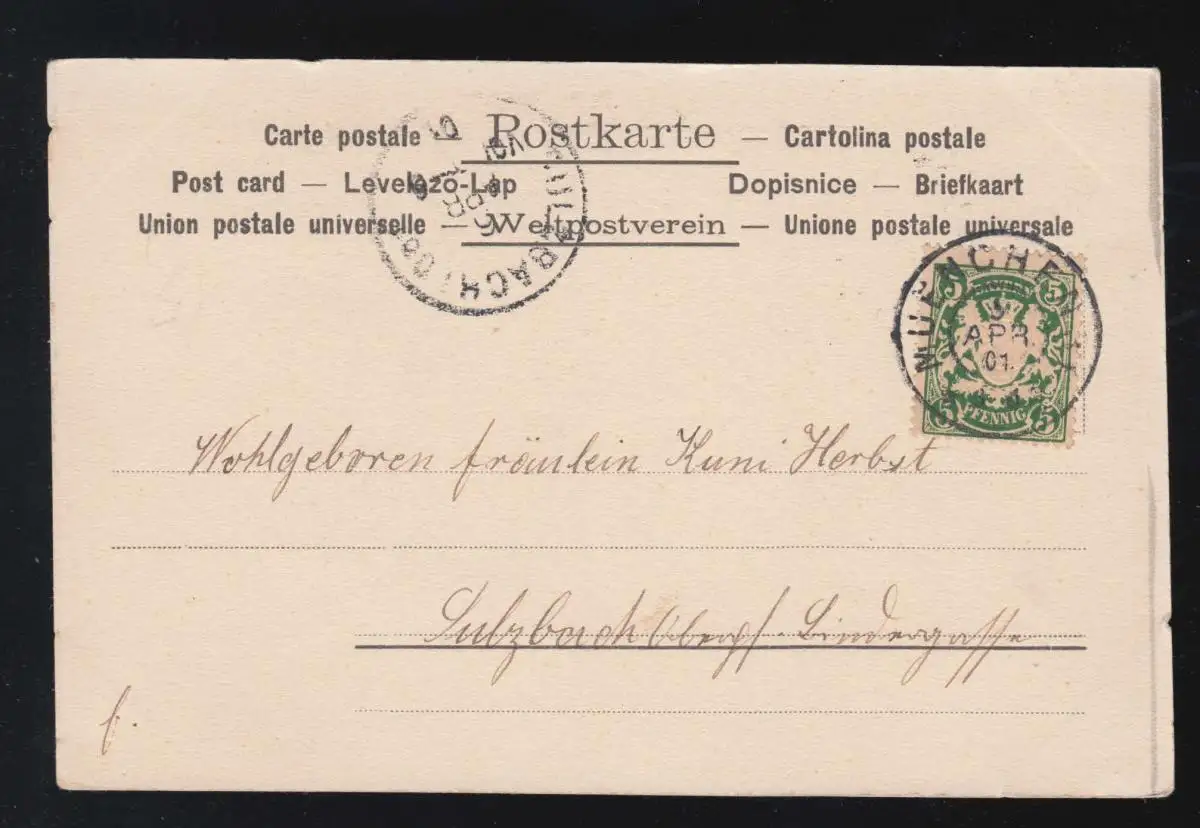 Carte postale — Postkarte — Cartolina postale
Post card — Levelezõ-Lap Dopisnice — Briefkaart
Union postale universelle — Weltpostverein — Unione postale universale
SULZBACH
MUENCHEN
APR.
01.
5 5
5 PFENNIG 5
Wohlgeboren fräulein Kuni Herbst
Sulzbach Lindergasse
f.